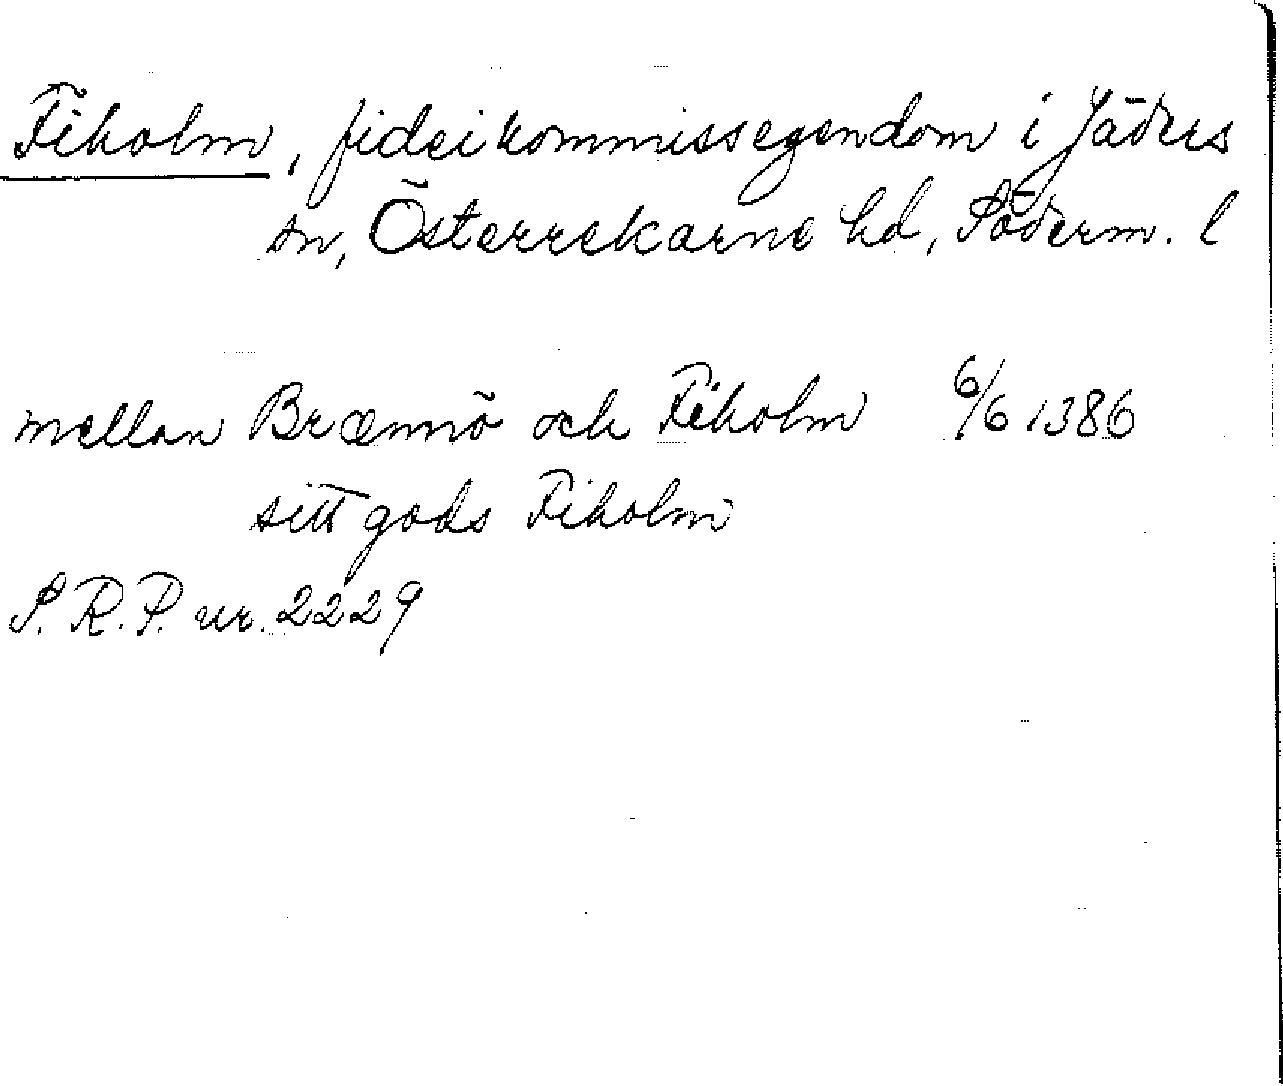 Fiholm, fideikommissegendom i Jäders
sn, Österrekarne hd, Söderm. l
mellan Brænnö och Fiholm 6/6 1386
sitt gods Fiholm
S.R.P. nr. 2229